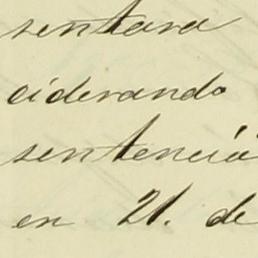 sentara
ciderando
sentenciá
en 21. de